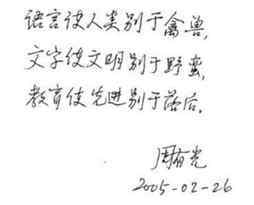 语言使人类别于禽兽,
文字使文明别于野蛮,
教育使先进别于落后。
周有光
2005-02-26